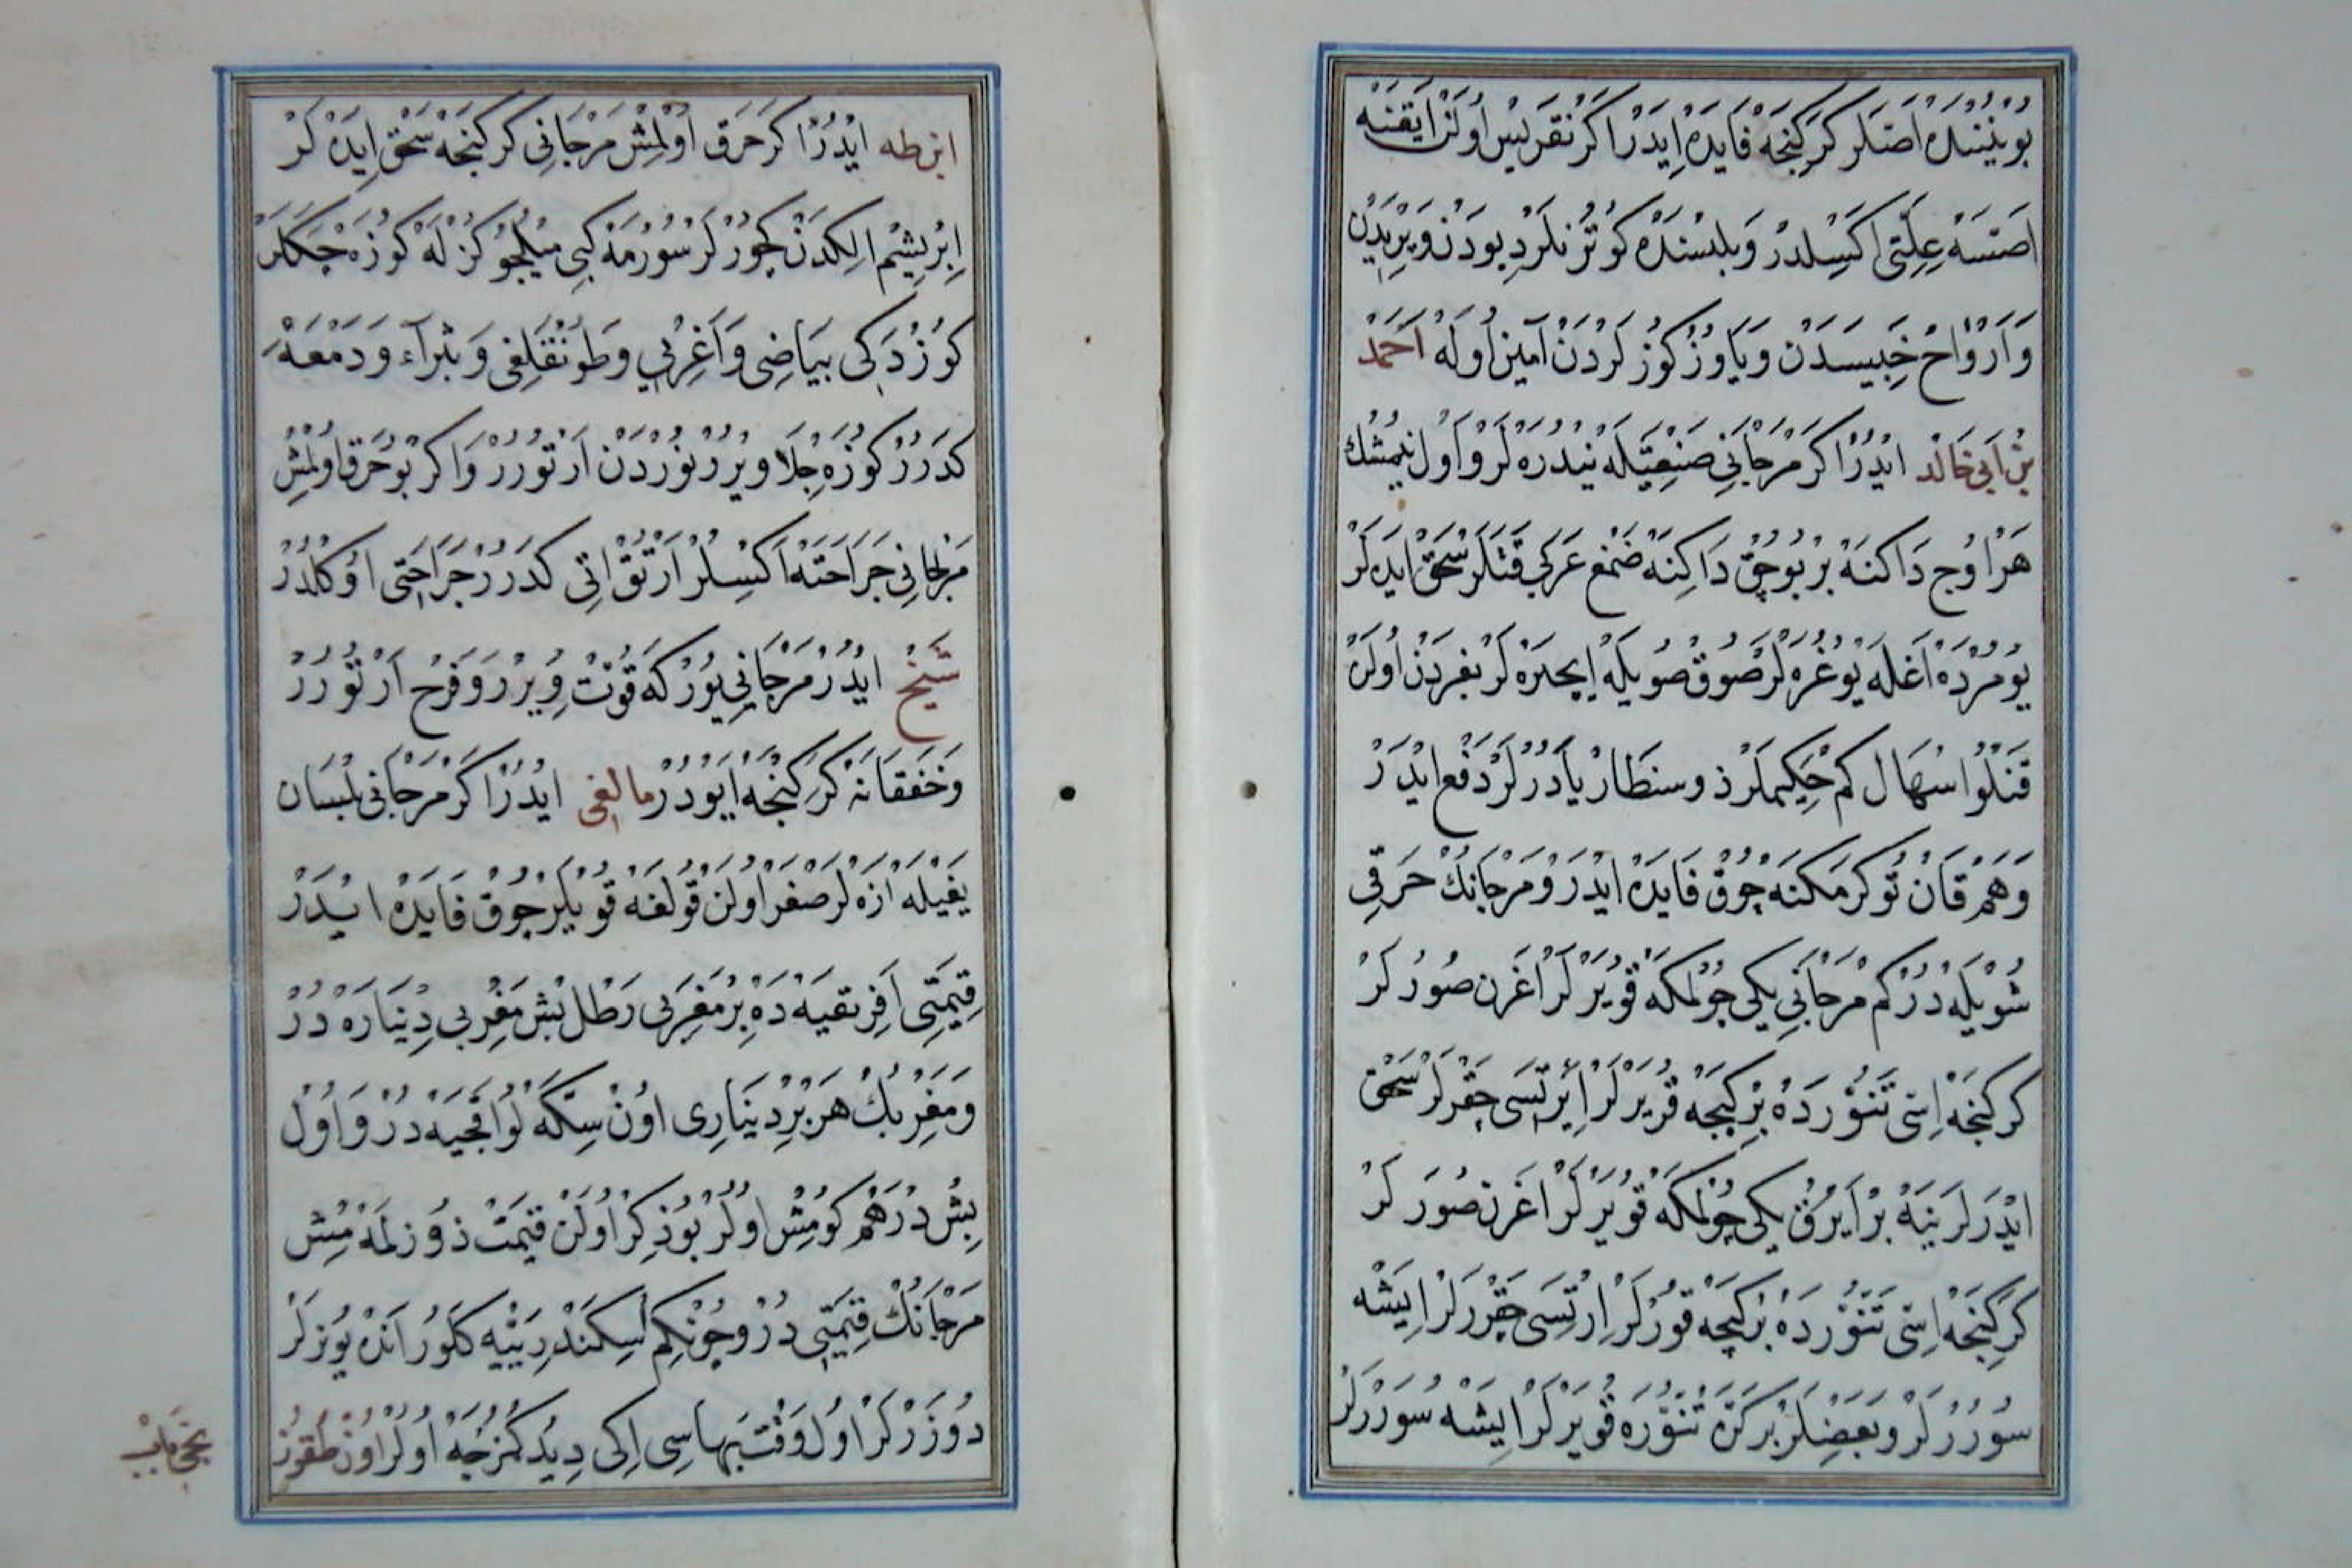 بُوينِنده اصَلر كَرَكِنجه فَايده اِيدَر اكر نقريس اولن ايقنه
اصَسَه عِلّتى اكسِلدر وبلسنده كوتُرنلر ديودن وپريدن
وَارْواحْ خَبيسدن وياوز كوزلردن آمين اوله احمد
بن ابى خالد ايدُر اكر مرجانى صنعتيله نيدره لر واول نيمشك
هر اوج دَاكنه بر بوچق داكنه ضمغ عربى قتلر سحق ايده لر
يومرده اغله يوغره لر صوق صويله ايچره لر بغردن اولن
قنلو اسهال كم حكيملر ذوسنطاريا دررلر دفع ايدر
وهم قان توكرمكنه چوق فايده ايدر ومرجانك حرقى
شويله در كم مرجانى يكى چولمكه قويرلر اغزن صورلر
كركنجه اسى تنورده بر كيجه قويرلر ايرتسى چقرلر سحق
ايدرلر ينه بر ايرق يكى چولمكه قويرلر اغزن صورلر
كركنجه اسى تنورده بر كيجه قورلر ارتسى چقررلر ايشه
سوررلر وبعضلر بر كره تنوره قويرلر ايشه سوررلر
ابن طه ايدر اكر حرق اولمش مرجانى كركنجه سحق ايده لر
ابريشم الكدن چورلر سورمه كبى ميلجوكزله كوزه چكلر
كوزدكى بياضى واغربى وطونقلغى وبثراء ودمعه
كدرر كوزه جلا ويرر نوردن ارتورر واكر بو حرق اولمش
مرجانى جراحته اكسلر ارتق اتى كدرر جراحتى اوكلدر
شيخ ايدر مرجانى يوركه قوت ويرر وفرح ارتورر
وخفقانه كركنجه ايودر مالغى ايدر اكر مرجانى بلسان
يغيله ازه لر صغر اولن قولغنه قويلر چوق فايده ايدر
قيمتى افريقيه ده بر مغربى رطل بش مغربى ديناره در
ومغربك هر بر دينارى اون سكه لو اقچيه در واول
بش درهم كومش اولر بو ذكر اولن قيمت دوزلمه مش
مرجانك قيمتى در وچونكم اسكندرييه كلور انده يوزلر
دوزرلر اول وقت بهاسى اكى ديدكمزجه اولر اون طقوز
نجى باب